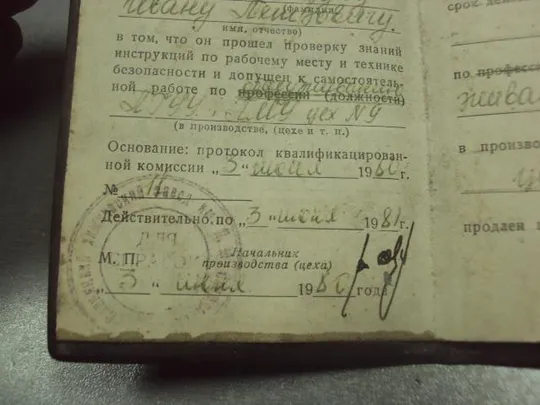 Ивану Петровичу.
(фамилия,
имя, отчество)
в том, что он прошел проверку знаний
инструкций по рабочему месту и технике
безопасности и допущен к самостоятель-
ной работе по профессии (должности)
цех N9
(в производстве, (цехе и т. п.)
Основание: протокол квалификацирован-
ной комиссии „3" июня 1980г.
№
Действительно по „3" июня 1981г.
М. П.
Начальник
производства (цеха)
„3" июня 1980 года
срок дей
по профессии
в произво
продлен